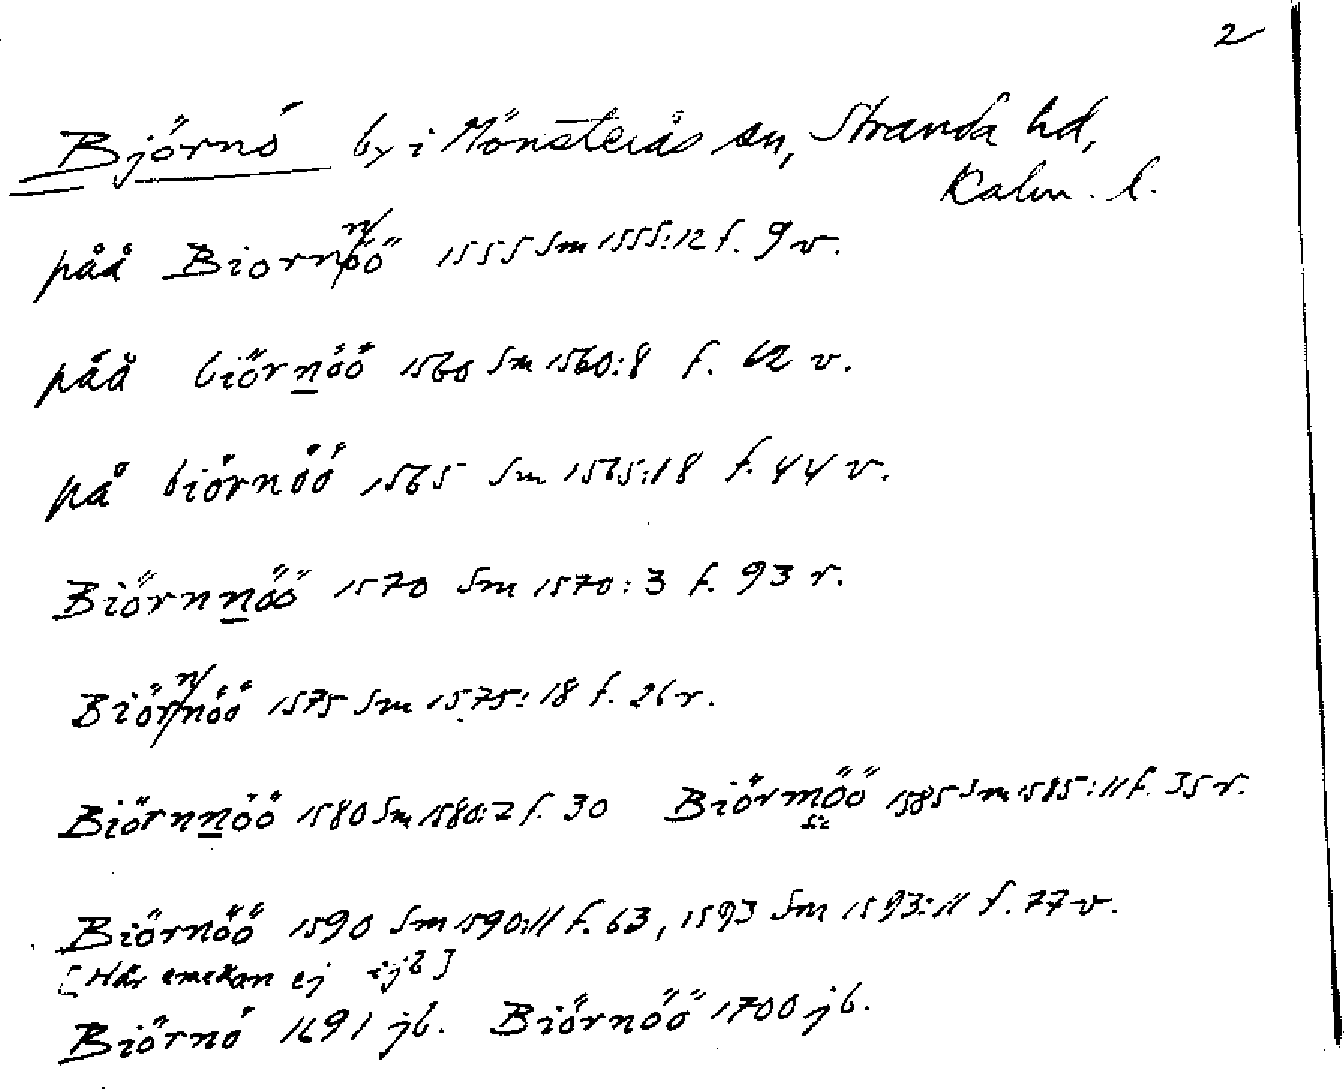 2
Björnö by i Mönsterås sn, Stranda hd,
Kalm. l.
påå Biornnöö 1555 Sm 1555:12 f. 9 v.
påå biörnöö 1560 Sm 1560:8 f. 62 v.
på biörnöö 1565 Sm 1565:18 f. 44 v.
Biörnnöö 1570 Sm 1570:3 f. 93 r.
Biörnnöö 1575 Sm 1575:18 f. 26 r.
Biörnnöö 1580 Sm 1580:2 f. 30 Biörmöö 1585 Sm 1585:11 f. 35 r.
sic
Biörnöö 1590 Sm 1590:11 f. 63, 1593 Sm 1593:11 f. 77 v.
[När ej ijb]
Biörnö 1691 jb. Biörnöö 1700 jb.